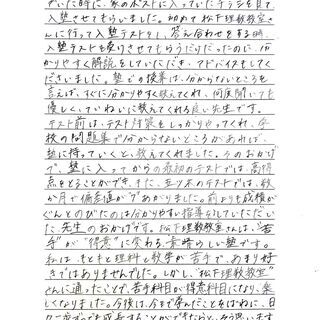 ていた時に、家のポストに入っていたチラシを見て
入塾させてもらいました。初めて松下理数教室さ
んに行って入塾テストをし、答え合わせをする時、
入塾テストを受けさせてもらうだけだったのに、分
かりやすく解説をしていただき、アドバイスもしてく
ださいました。塾での授業は、分からないところを
言えば、すぐに分かりやすく教えてくれ、何度聞いても
優しく、ていねいに教えてくれる良い先生です。
テスト前は、テスト対策をしっかりやってくれ、学
校の問題集で分からないところがあれば、
塾に持っていくと、教えてくれました。そのおかげ
で、塾に入ってからの最初のテストでは、高得
点をとることができ、また、五ツ木のテストでは、数
か月で偏差値が上がりました。前よりも成績が
ぐんとのびたのは分かりやすい指導をしていただい
た、先生のおかげです。松下理数教室さんは、"苦
手"が"得意"に変わる素晴らしい塾です。
私は、もともと理科と数学が苦手で、あまり好
きではありませんでした。しかし、"松下理数教室"
さんに通ったことで、苦手科目が得意科目になり、楽
しくなりました。今後は、今まで学んだことをばねに、日